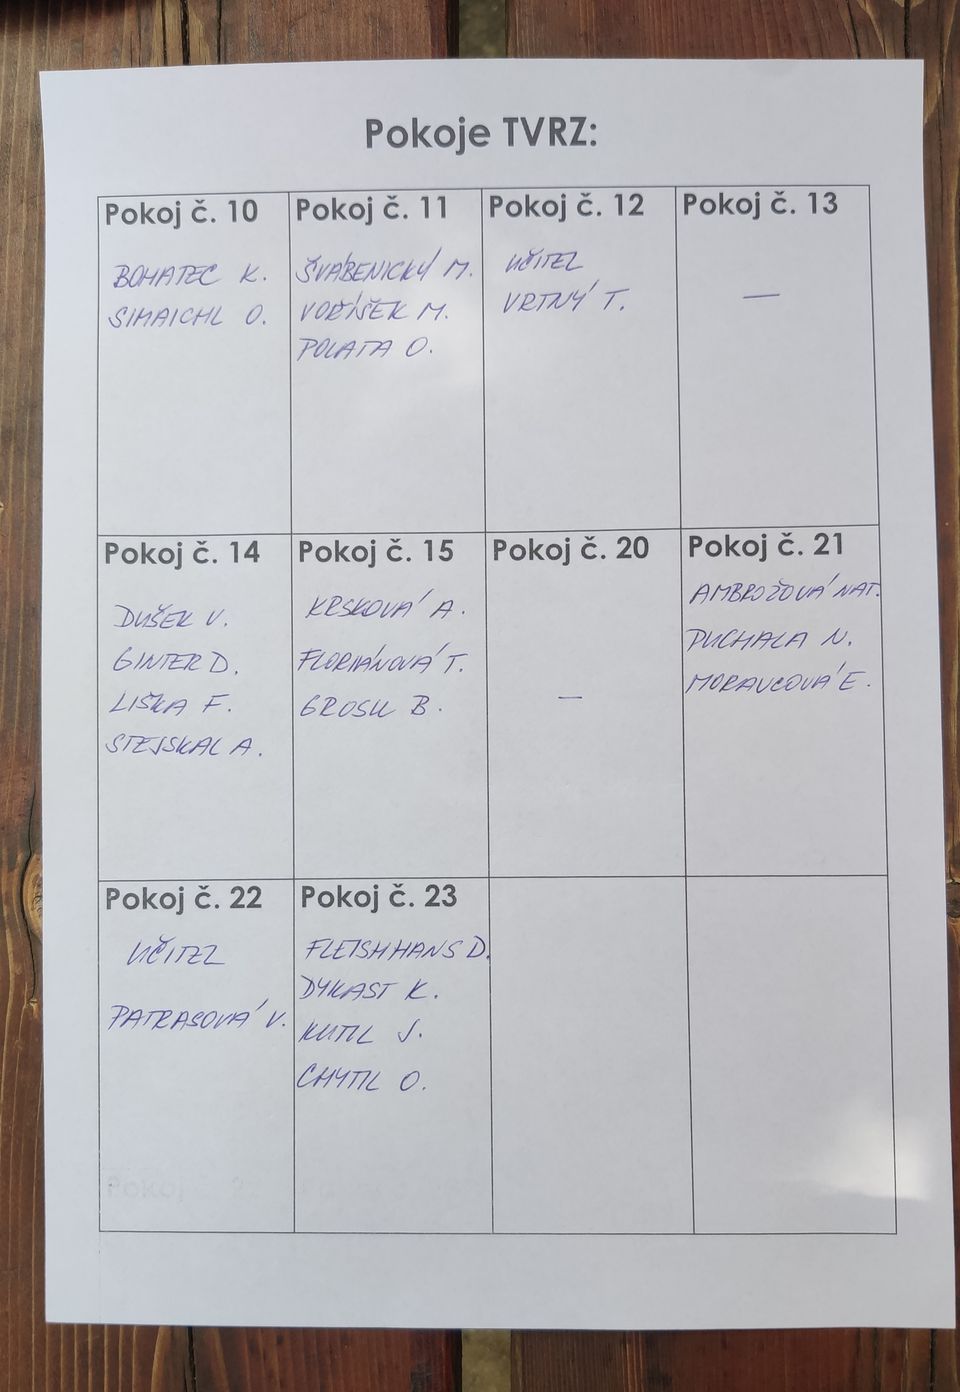 Pokoje TVRZ:
Pokoj č. 10
BOHATEC K.
SIMAICHL O.
Pokoj č. 11
ŠVÁBENICKÝ M.
VOŘÍŠEK M.
POLATA O.
Pokoj č. 12
UČITEL
VRTNÝ T.
Pokoj č. 13
—
Pokoj č. 14
DUŠEK V.
GINTER D.
LIŠKA F.
STEJSKAL A.
Pokoj č. 15
KRSKOVÁ A.
FLORIÁNOVÁ T.
GROSU B.
Pokoj č. 20
—
Pokoj č. 21
AMBROŽOVÁ NAT.
PUCHALA N.
MORAVCOVÁ E.
Pokoj č. 22
UČITEL
PATRASOVÁ V.
Pokoj č. 23
FLEISHHANS D.
DYKAST K.
KUTIL J.
CHYTIL O.